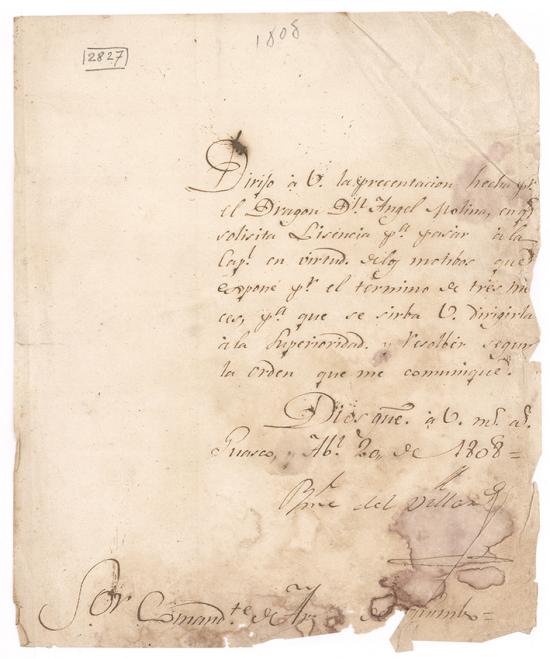 2827
1808
Dirijo à V. la precentacion hecha pr.
el Dragon Dn. Angel Molina, en q.
solicita Lisencia pa. pasar à la
Capl. en virtud. de los motibos que
espone pr. el término de tres me
ces, pa. que se sirba V. dirigirla
à la Superioridad. y resolber segun
la orden que me comunique.
Dios gue. à V. ms. as.
Abl. 20, de 1808=
Bme del Villar
Sor. Comandte. de